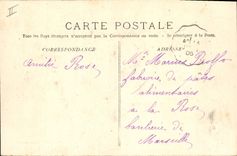 CARTE POSTALE
Tous les Pays étrangers n'acceptent pas la Correspondance au recto. — Se renseigner à la Poste.
CORRESPONDANCE
ADRESSE
amitié Rose
Mr Marius
fabrique de pâtes
alimentaires
à la Rose
banlieue de
Marseille